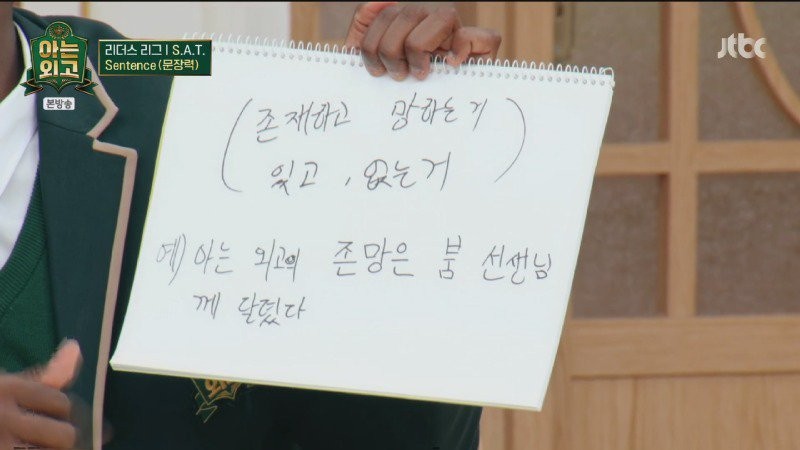 아는
외고
본방송
리더스 리그 | S.A.T.
Sentence (문장력)
jtbc
(존재하고 망하는기
잊고, 없는거)
예) 아는 외고의 존망은 붐 선생님
께 달렸다
외고